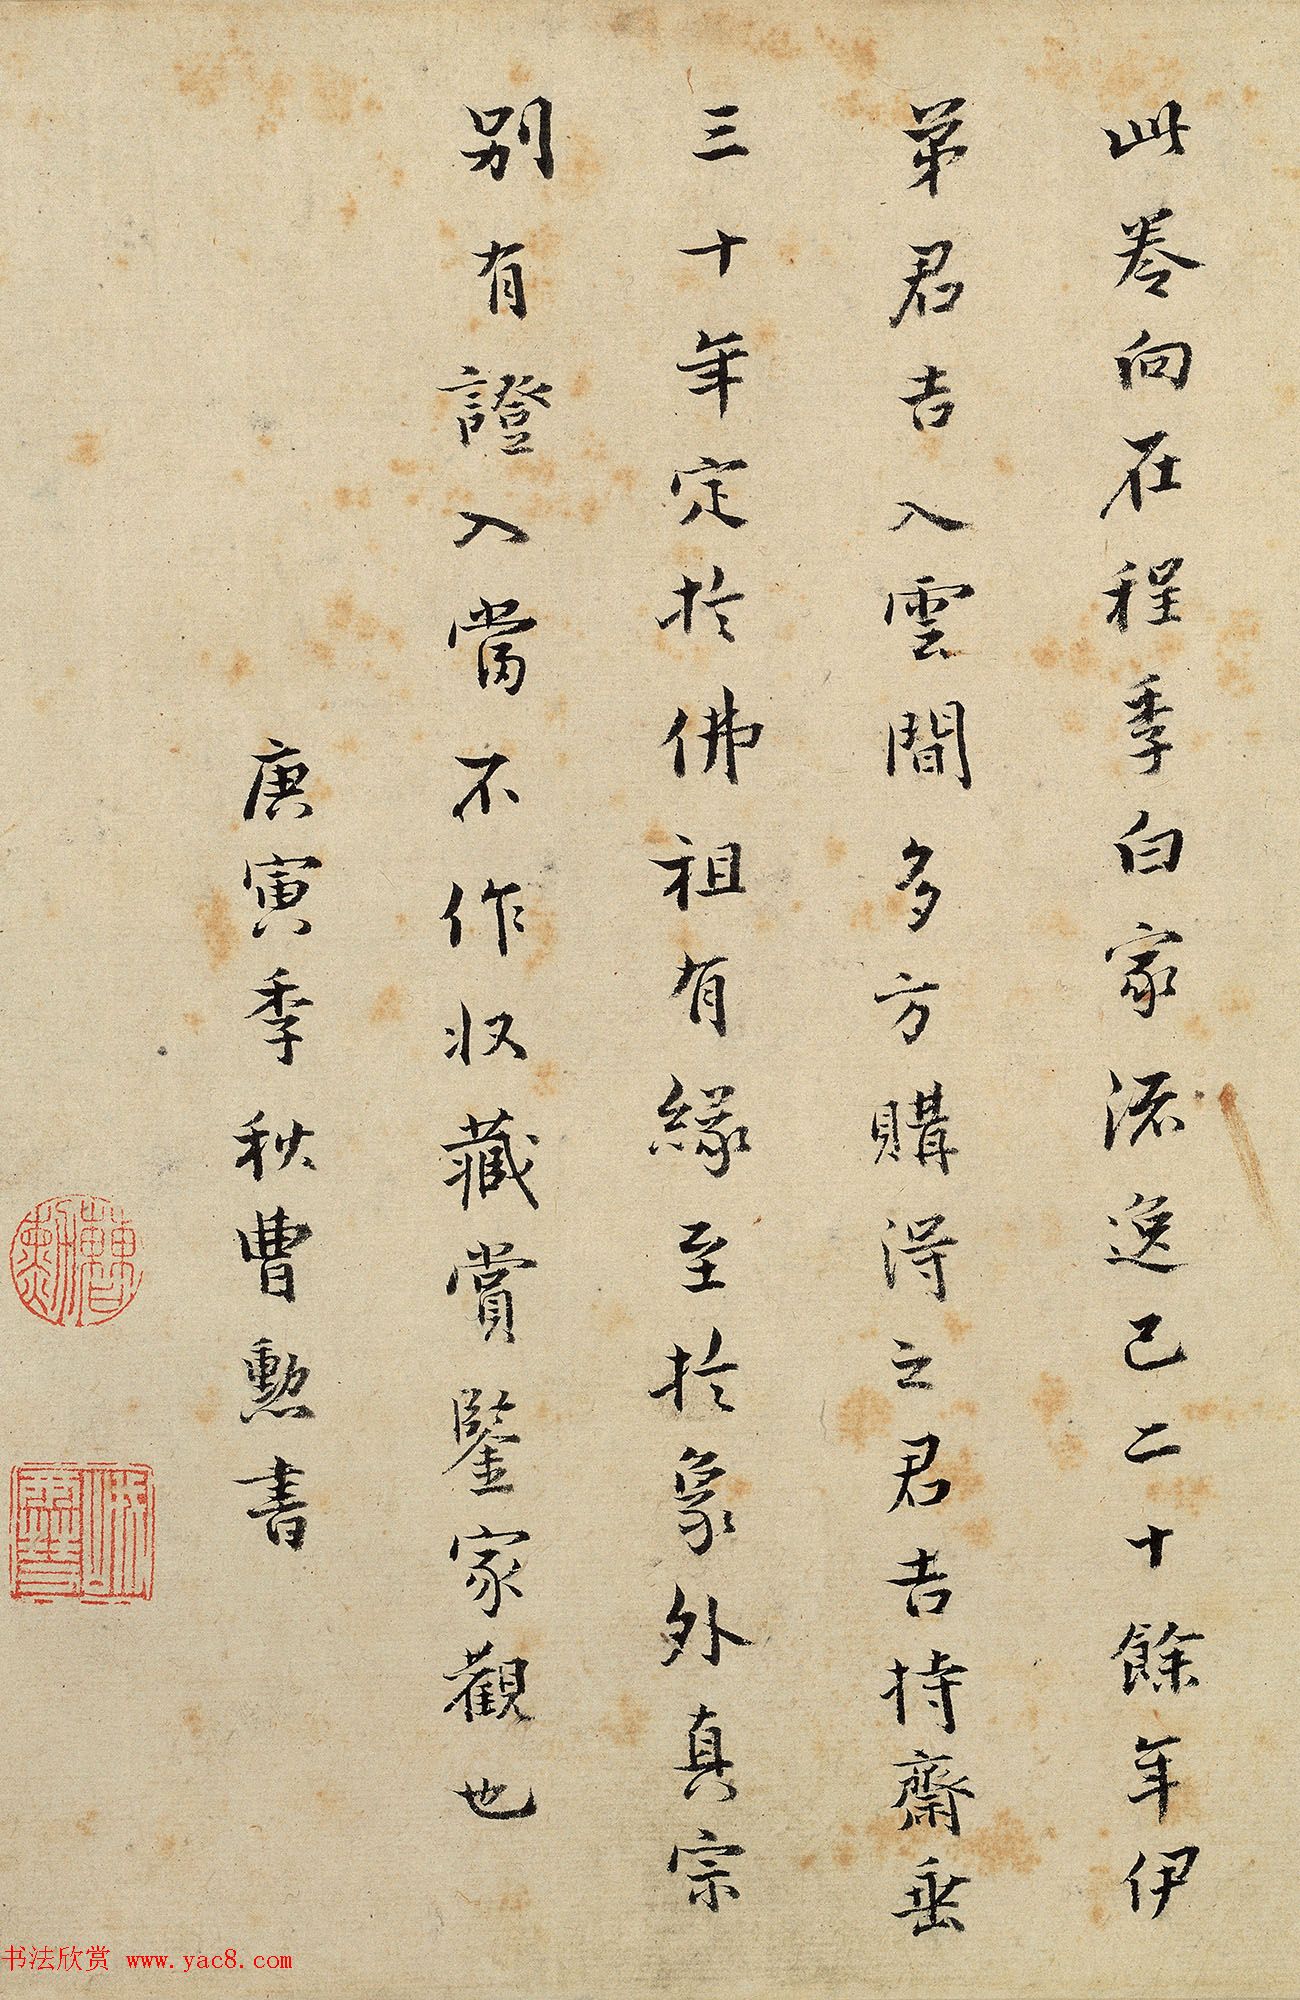 此卷向在程季白家流逸已二十餘年伊
弟君吉入雲間多方購得之君吉持齋垂
三十年定於佛祖有緣至於象外真宗
别有證入當不作收藏賞鑒家觀也
庚寅季秋曹勳書
书法欣赏 www.yac8.com